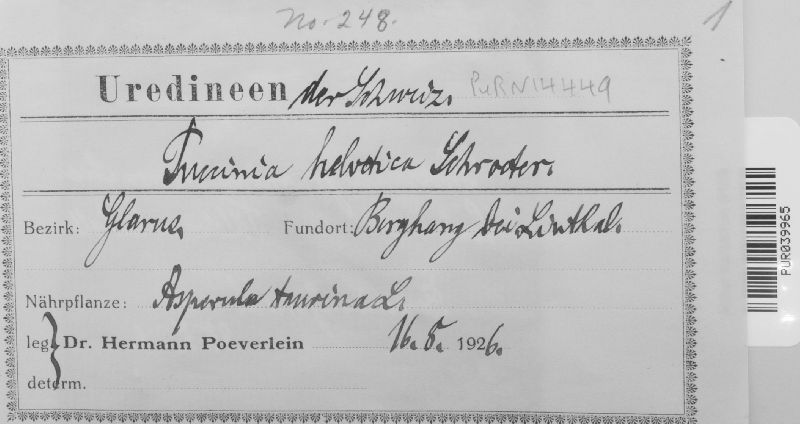 No. 248.
1
Uredineen der Schweiz.
PURN14449
Puccinia helvetica Schroter.
Bezirk: Glarus. Fundort: Berghang bei Linthal.
Nährpflanze: Asperula taurina L.
leg. Dr. Hermann Poeverlein 16. 8. 1926.
determ.
PUR039965